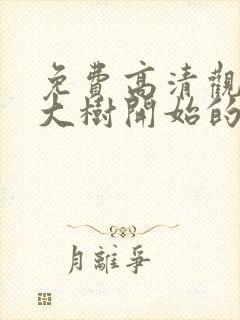 免費高清觀
大樹開始的
月離爭